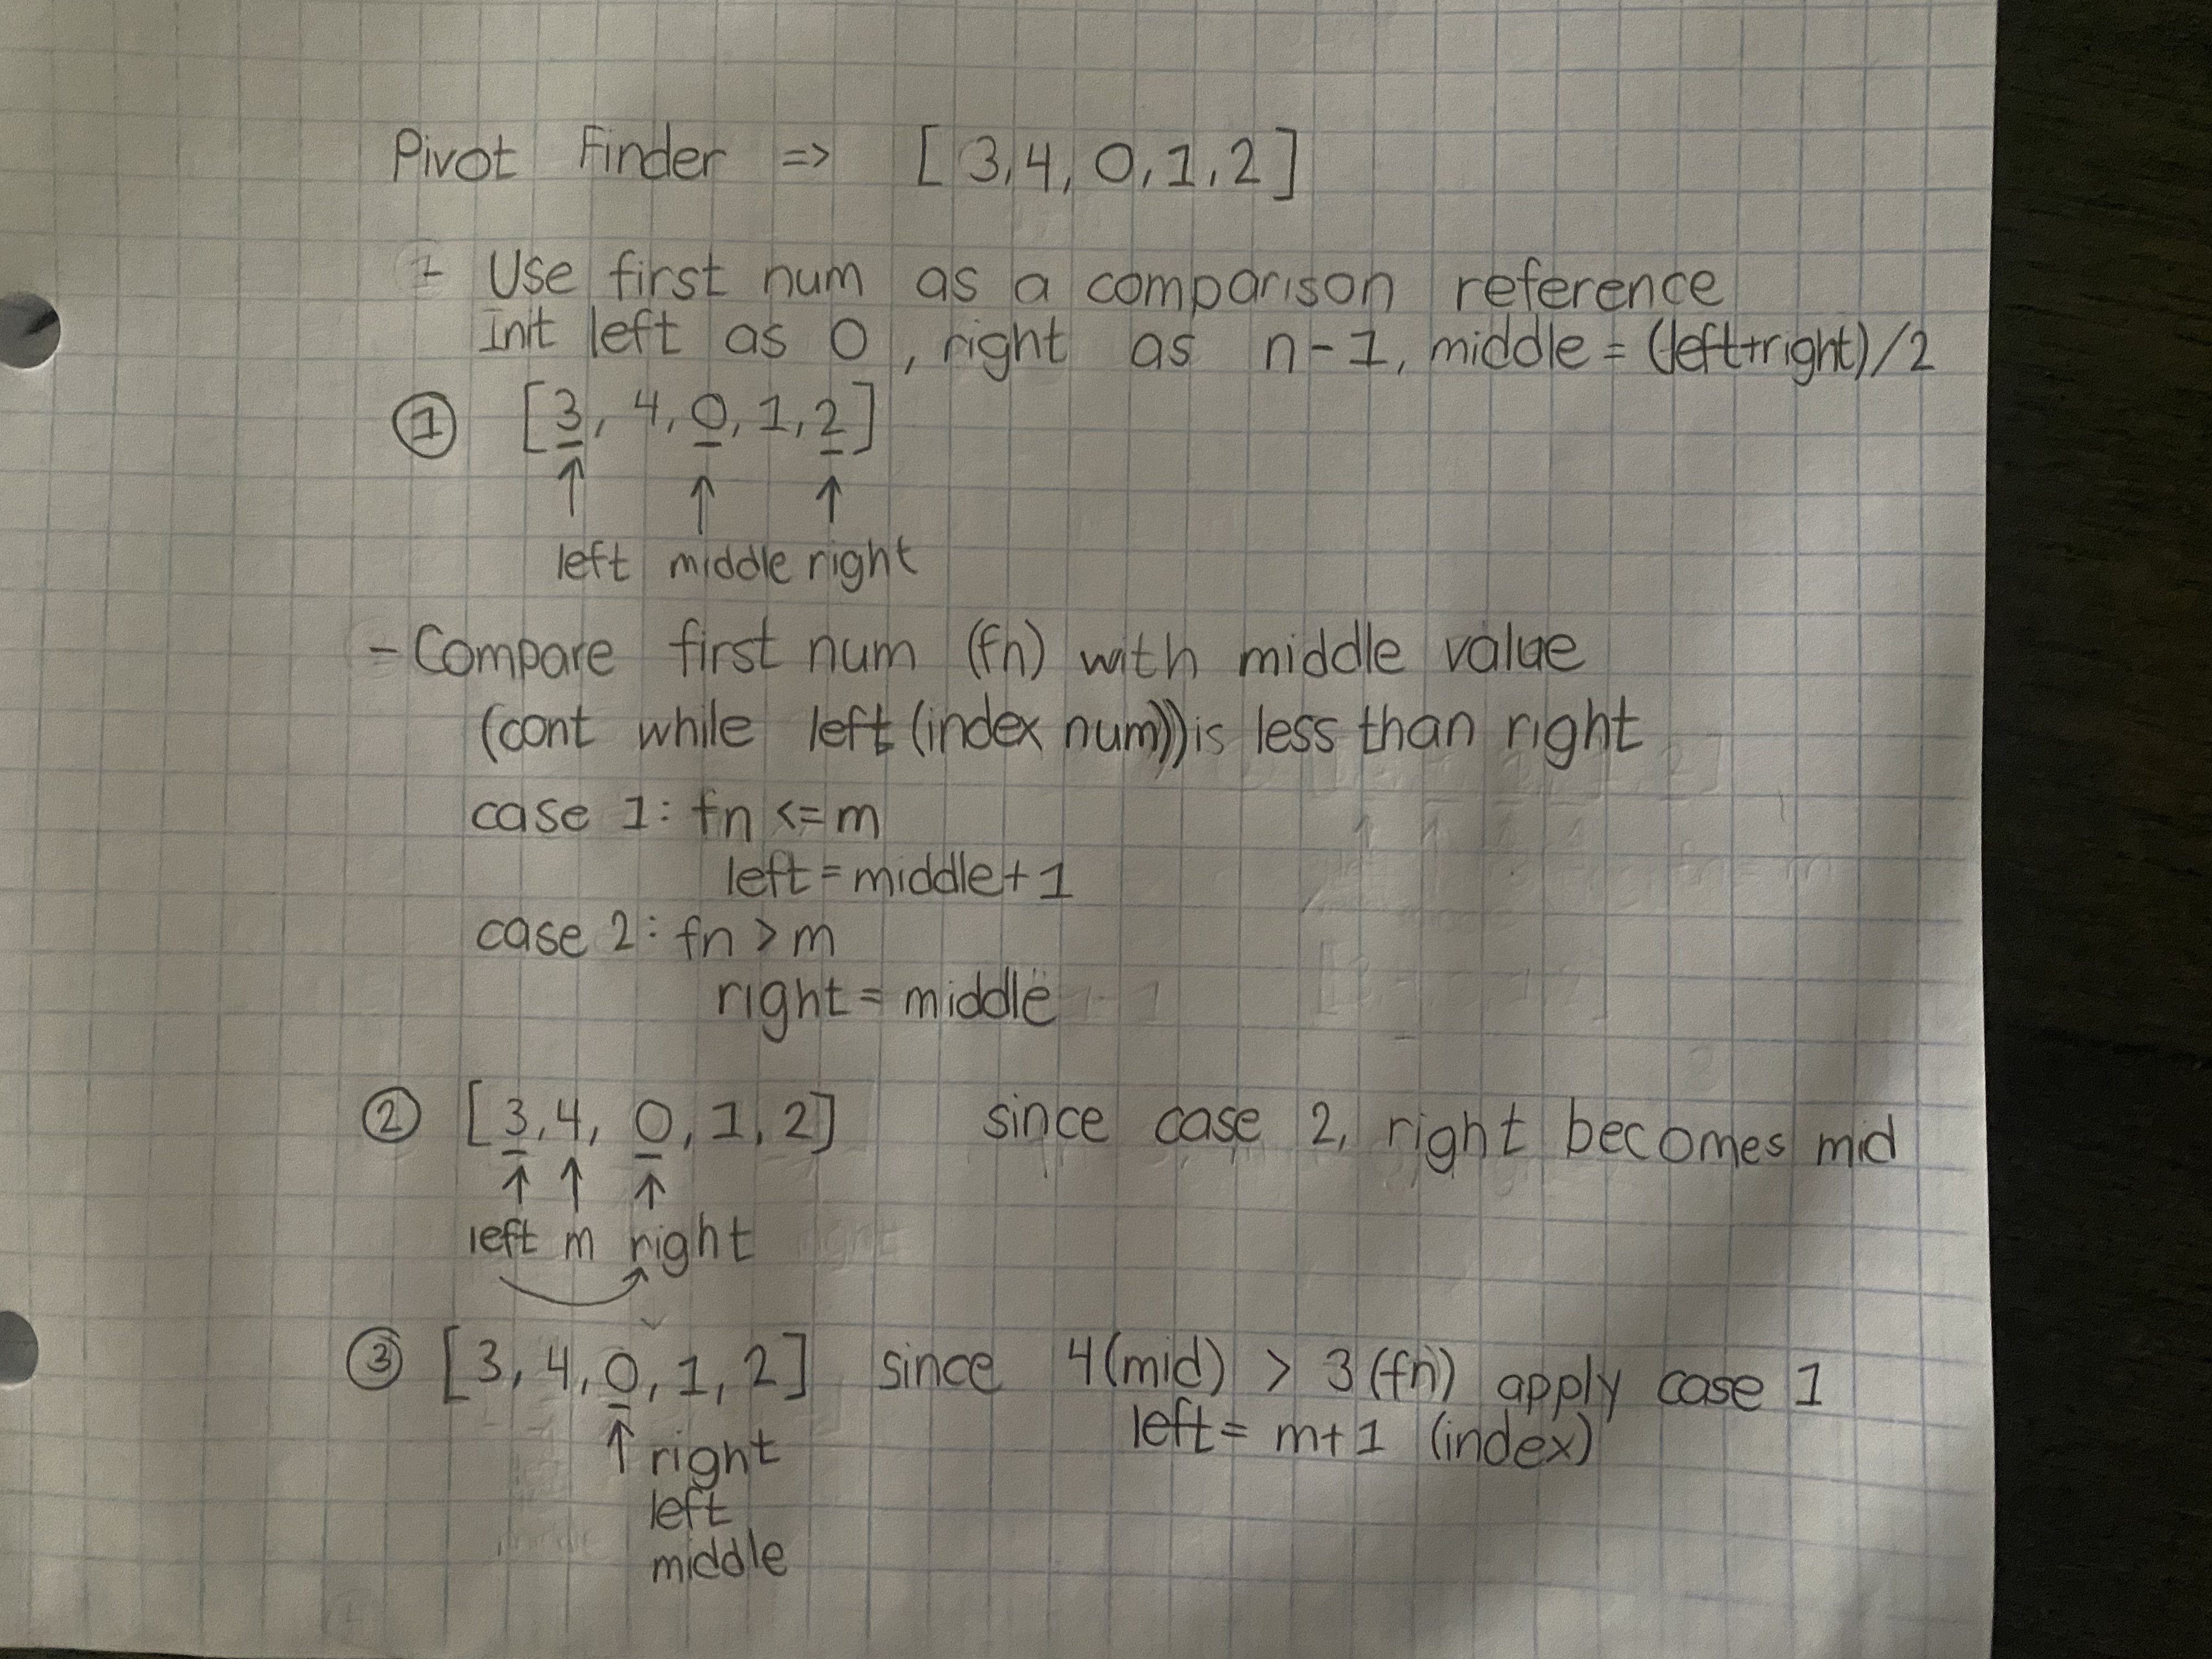 Pivot Finder => [3,4,0,1,2]
- Use first num as a comparison reference
Init left as 0, right as n-1, middle = (left+right)/2
① [3, 4, 0, 1, 2]
left middle right
- Compare first num (fn) with middle value
(cont while left (index num)) is less than right
case 1: fn <= m
left = middle + 1
case 2: fn > m
right = middle
② [3,4, 0, 1, 2] since case 2, right becomes mid
left m right
③ [3, 4, 0, 1, 2] since 4(mid) > 3(fn) apply case 1
left = m+1 (index)
right
left
middle